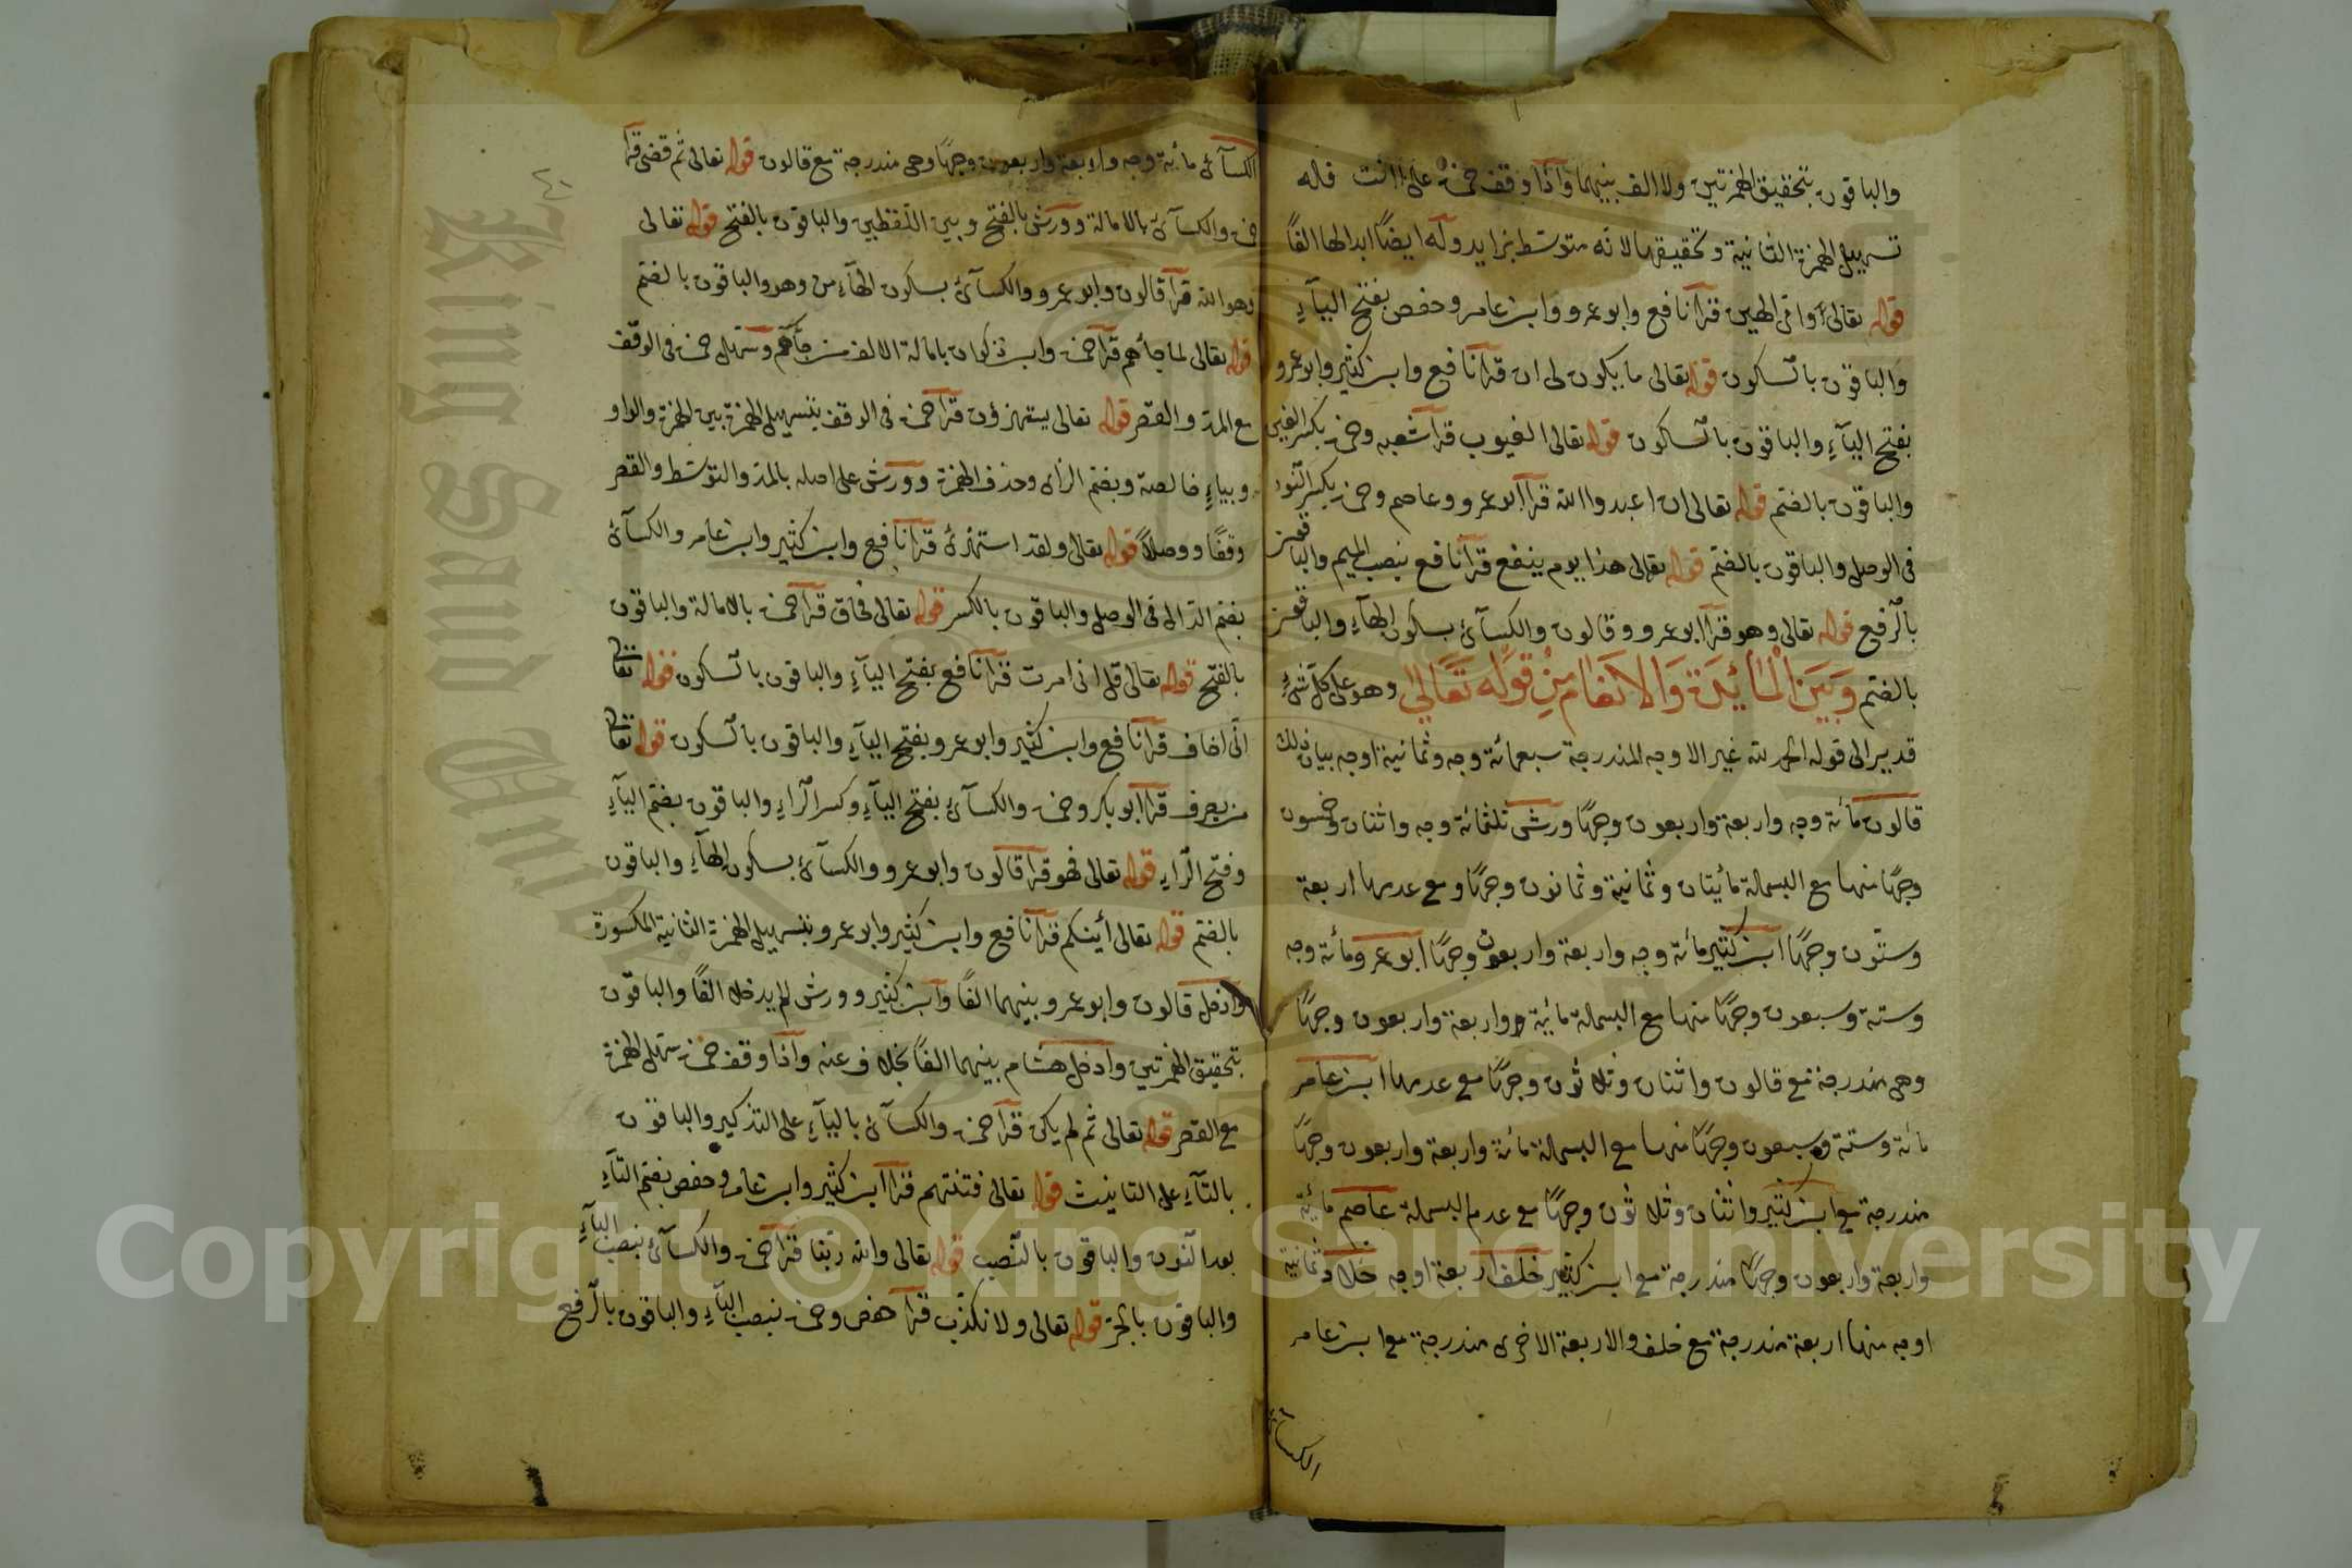 والباقون بتحقيق الهمزتين ولا الف بينهما واذا وقف حمزة على أانت فله
تسهيل الهمزة الثانية وتحقيقها لانه متوسّط بزايد وله ايضًا ابدالها الفًا
قوله تعالى وامّى الهين قرأ نافع وابو عمرو وابن عامر وحفص بفتح اليآءِ
والباقون بالسكون قوله تعالى ما يكون لى ان قرأ نافع وابن كثير وابو عمرو
بفتح اليآءِ والباقون بالسّكون قوله تعالى الغيوب قرأ شعبه وحمزة بكسر الغين
والباقون بالضّم قوله تعالى ان اعبدوا الله قرأ ابو عمرو وعاصم وحمزة بكسر النّون
فى الوصل والباقون بالضّم قوله تعالى هذا يوم ينفع قرأ نافع بنصب الميم والباقون
بالرّفع قوله تعالى وهو قرأ ابو عمرو وقالون والكسآئ بسكون الهآءِ والباقون
بالضّم وَبَيْنَ الْمَآئِدَةِ وَالاَنْعَام مِنْ قَوْلِه تَعَالىٰ وهو على كلّ شئٍ
قدير الى قوله الحمد لله غير الاوجه المندرجة سبعمائة وجه وثمانية اوجه بيان ذلك
قالون مائة وجه واربعة واربعون وجهًا ورش ثلثمائة وجه واثنان وخمسون
وجهًا منها مع البسملة مأيتان وثمانية وثمانون وجهًا ومع عدمها اربعة
وستّون وجهًا ابن كثير مائة وجه واربعة واربعون وجهًا ابو عمرو مائة وجه
وستة وسبعون وجهًا منها مع البسملة مائية واربعة واربعون وجهًا
وهى مندرجة مع قالون واثنان وثلاثون وجهًا مع عدمها ابن عامر
مائة وستة وسبعون وجهًا منها مع البسملة مائة واربعة واربعون وجهًا
مندرجة مع ابن كثير واثنان وثلاثون وجهًا مع عدم البسملة عاصم مائية
واربعة واربعون وجهًا مندرجة مع ابن كثير خلف اربعة اوجه خلاد ثمانية
اوجه منها اربعة مندرجة مع خلف والاربعة الاخرى مندرجة مع ابن عامر
الكسآئ
الكسآئ مائية وجه واربعة واربعون وجهًا وهى مندرجة مع قالون قوله تعالى ثم قضى قرأ
والكسآئ بالامالة وورش بالفتح وبين اللّفظين والباقون بالفتح قوله تعالى
وهو الله قرأ قالون وابو عمرو والكسآئ بسكون الهآءِ من وهو والباقون بالضّم
قوله تعالى لما جائهم قرأ حمزة وابن ذكوان بامالة الالف من جآئهم وسهّل حمزة فى الوقف
مع المدّ والقصر قوله تعالى يستهزؤن قرأ حمزة فى الوقف بتسهيل الهمزة بين الهمزة والواو
وبياءٍ خالصة وبضم الزاى وحذف الهمزة وورش على اصله بالمدّ والتوسّط والقصر
وقفًا ووصلاً قوله تعالى ولقد استهزئ قرأ نافع وابن كثير وابن عامر والكسآئ
بضم الدّال فى الوصل والباقون بالكسر قوله تعالى فحاق قرأ حمزة بالامالة والباقون
بالفتح قوله تعالى قل انى امرت قرأ نافع بفتح اليآءِ والباقون بالسكون قوله تعالى
انّى اخاف قرأ نافع وابن كثير وابو عمرو بفتح اليآءِ والباقون بالسّكون قوله تعالى
من يصرف قرأ ابو بكر وحمزة والكسآئ بفتح اليآءِ وكسر الرّاءِ والباقون بضمّ اليآءِ
وفتح الرّاءِ قوله تعالى فهو قرأ قالون وابو عمرو والكسآئ بسكون الهآءِ والباقون
بالضّم قوله تعالى أينكم قرأ نافع وابن كثير وابو عمرو بتسهيل الهمزة الثانية المكسورة
وادخل قالون وابو عمرو بينهما الفًا وابن كثير وورش لم يدخلا الفًا والباقون
بتحقيق الهمزتين وادخل هشام بينهما الفًا بخلاف عنه واذا وقف حمزة سهّل الهمزة
مع القصر قوله تعالى ثم لم يكن قرأ حمزة والكسآئ باليآءِ على التذكير والباقون
بالتآءِ على التانيث قوله تعالى فتنتهم قرأ ابن كثير وابن عامر وحفص بضم التآءِ
بعد النّون والباقون بالنّصب قوله تعالى والله ربّنا قرأ حمزة والكسآئ بنصب البآءِ
والباقون بالجرّ قوله تعالى ولا نكذّب قرأ حفص وحمزة بنصب البآءِ والباقون بالرّفع
King Saud University
Copyright © King Saud University